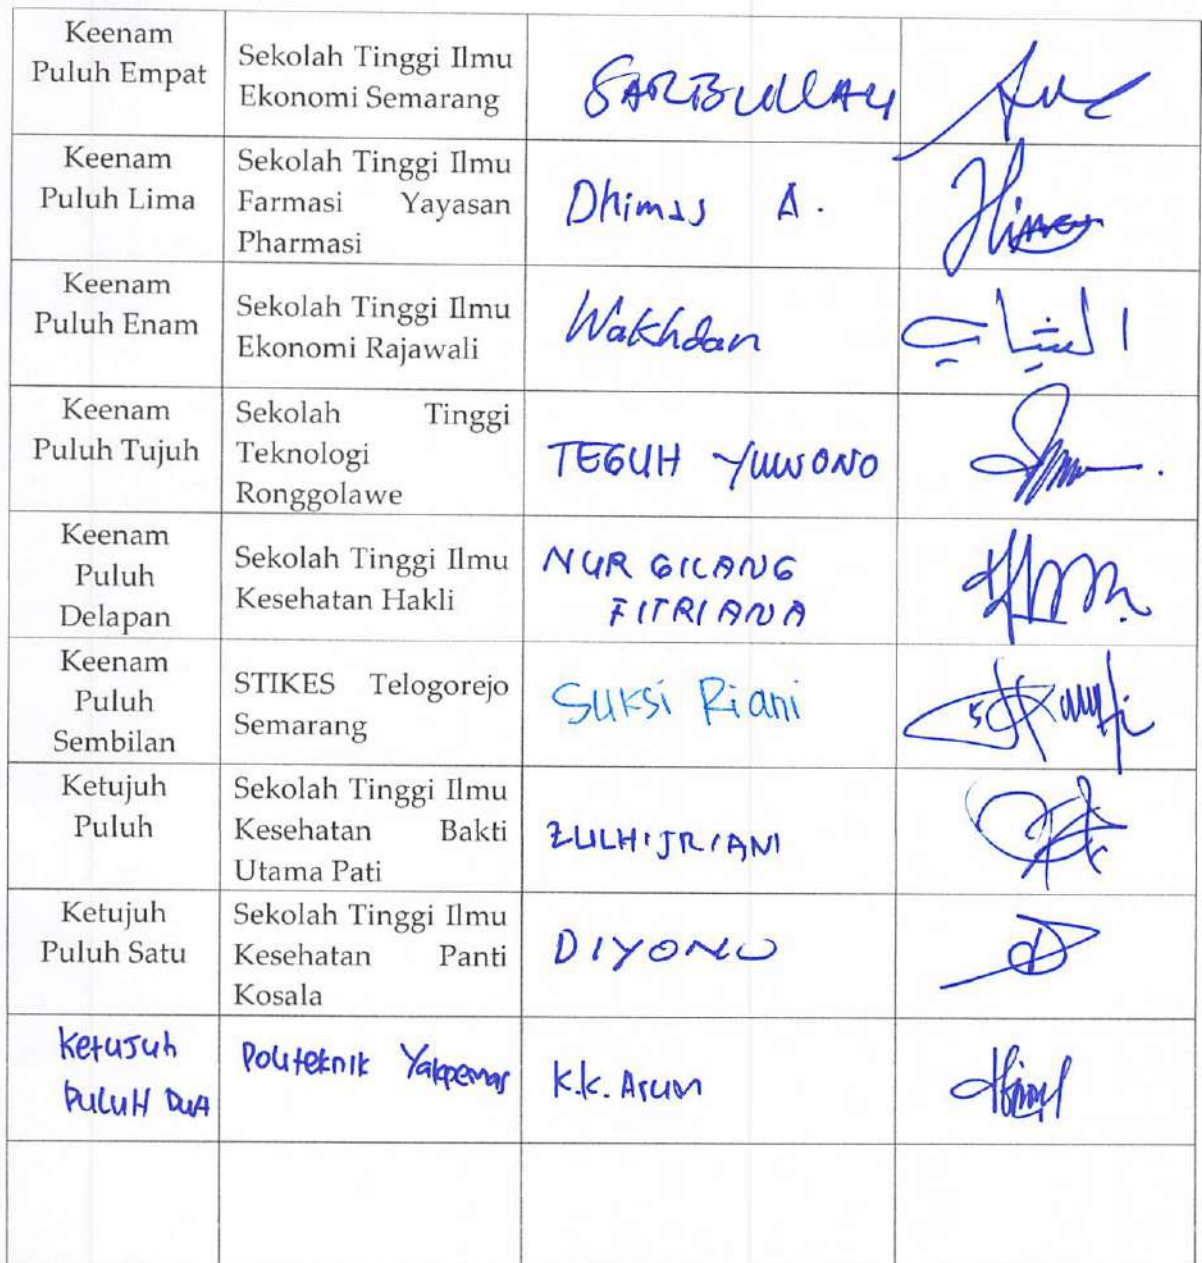 Keenam
Puluh Empat
Sekolah Tinggi Ilmu
Ekonomi Semarang
SARIBULLAH
Keenam
Puluh Lima
Sekolah Tinggi Ilmu
Farmasi Yayasan
Pharmasi
Dhimas A.
Keenam
Puluh Enam
Sekolah Tinggi Ilmu
Ekonomi Rajawali
Wakhdan
Keenam
Puluh Tujuh
Sekolah Tinggi
Teknologi
Ronggolawe
TEGUH YUWONO
Keenam
Puluh
Delapan
Sekolah Tinggi Ilmu
Kesehatan Hakli
NUR GILANG
FITRIANA
Keenam
Puluh
Sembilan
STIKES Telogorejo
Semarang
Suksi Riani
Ketujuh
Puluh
Sekolah Tinggi Ilmu
Kesehatan Bakti
Utama Pati
ZULHIJRIANI
Ketujuh
Puluh Satu
Sekolah Tinggi Ilmu
Kesehatan Panti
Kosala
DIYONO
Ketujuh
PULUH DUA
Politeknik Yakpermas
K.K. Arum